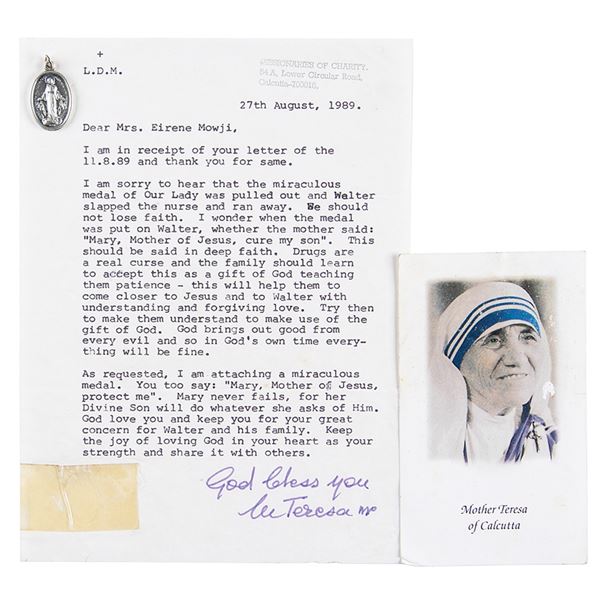 +
L.D.M.
MISSIONARIES OF CHARITY.
54A, Lower Circular Road,
Calcutta-700016.
27th August, 1989.
Dear Mrs. Eirene Mowji,
I am in receipt of your letter of the
11.8.89 and thank you for same.
I am sorry to hear that the miraculous
medal of Our Lady was pulled out and Walter
slapped the nurse and ran away. We should
not lose faith. I wonder when the medal
was put on Walter, whether the mother said:
"Mary, Mother of Jesus, cure my son". This
should be said in deep faith. Drugs are
a real curse and the family should learn
to accept this as a gift of God teaching
them patience - this will help them
to come closer to Jesus and to Walter with
understanding and forgiving love. Try then
to make them understand to make use of the
gift of God. God brings out good from
every evil and so in God's own time every-
thing will be fine.
As requested, I am attaching a miraculous
medal. You too say: "Mary, Mother of Jesus,
protect me". Mary never fails, for her
Divine Son will do whatever she asks of Him.
God love you and keep you for your great
concern for Walter and his family. Keep
the joy of loving God in your heart as your
strength and share it with others.
God bless you
M Teresa mc
Mother Teresa
of Calcutta